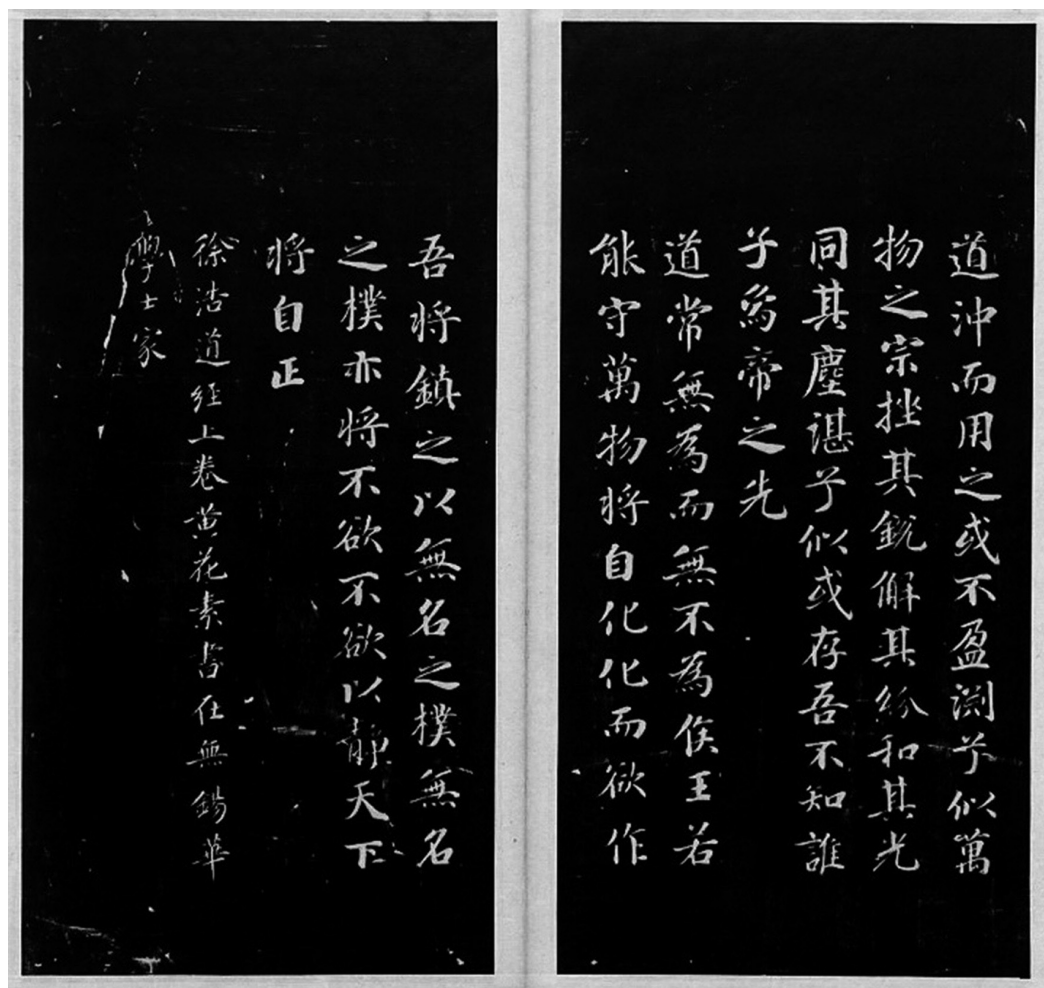 道沖而用之或不盈渊兮似萬
物之宗挫其銳解其紛和其光
同其塵湛兮似或存吾不知誰
子為帝之先
道常無為而無不為侯王若
能守萬物將自化化而欲作
吾將鎮之以無名之樸無名
之樸亦將不欲不欲以靜天下
將自正
徐浩道經上卷黄花素書在無錫華
學士家